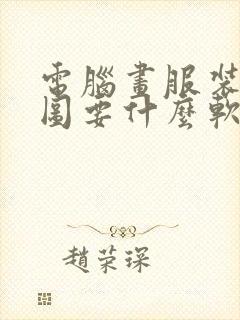 電腦畫服裝
圖要什麼軟
趙荣琛